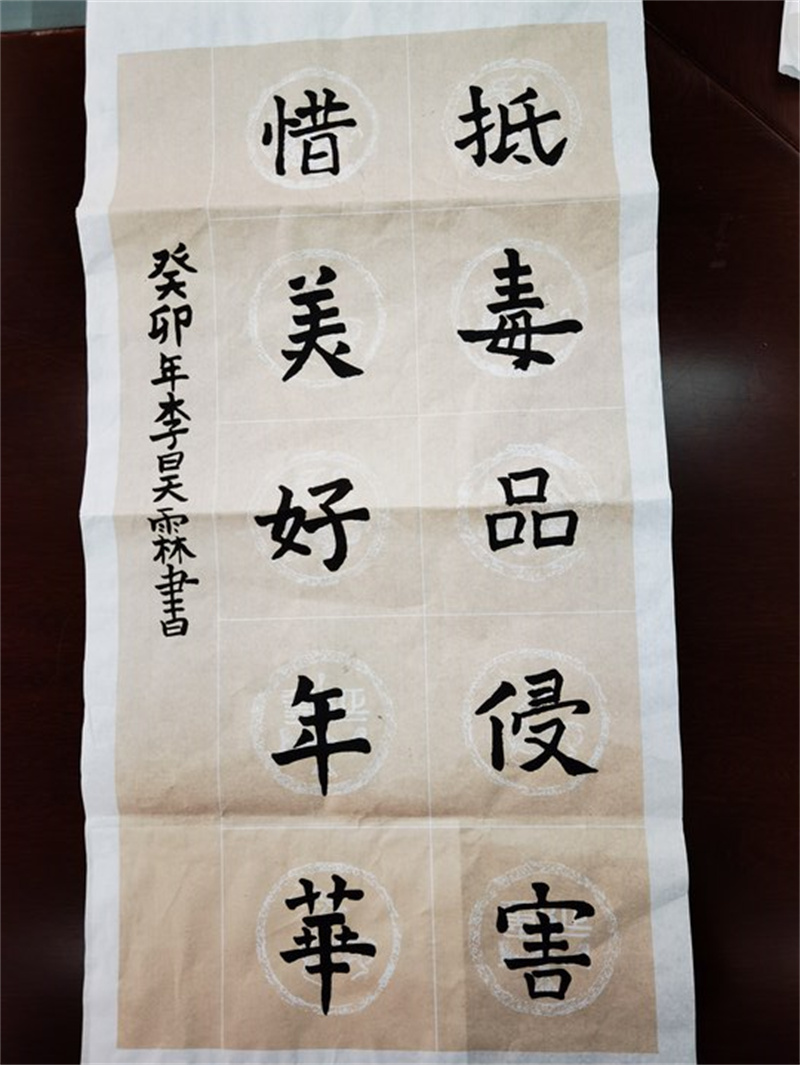 抵毒品侵害
惜美好年華
癸卯年李昊天霖書